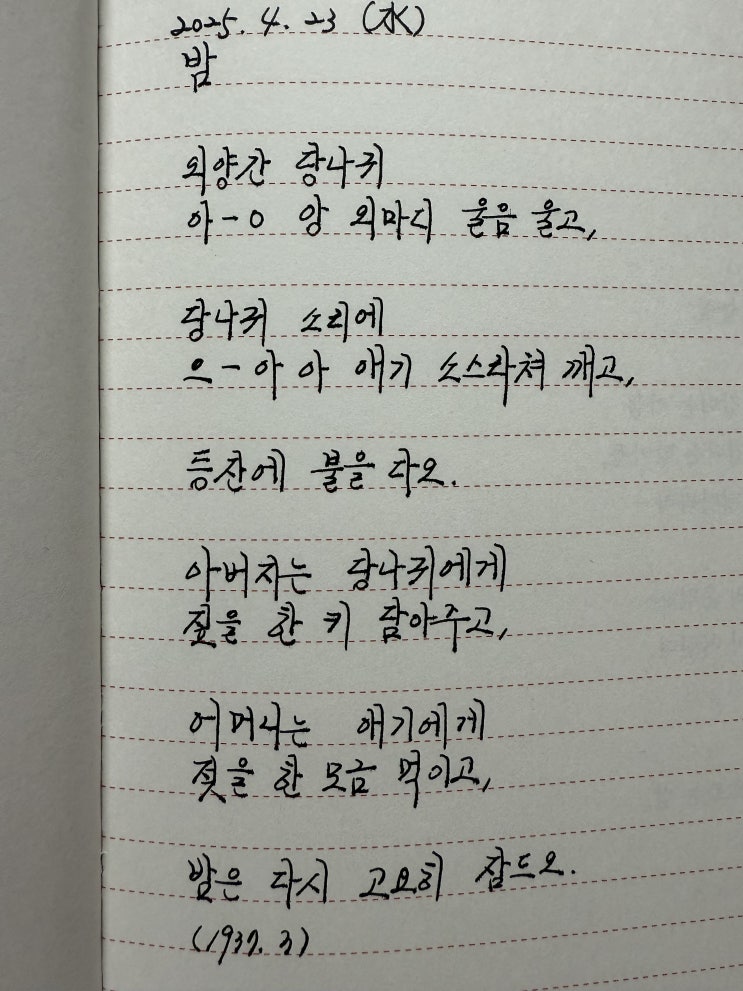 2025. 4. 23 (水)
밤
외양간 당나귀
아-ㅇ 앙 외마디 울음 울고,
당나귀 소리에
으-아 아 애기 소스라쳐 깨고,
등잔에 불을 다오.
아버지는 당나귀에게
짚을 한 키 담아주고,
어머니는 애기에게
젖을 한 모금 먹이고,
밤은 다시 고요히 잠드오.
(1937. 3)